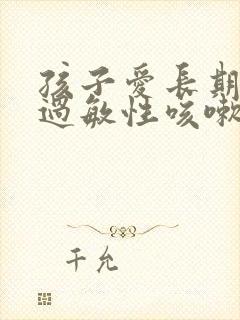 孩子愛長期
過敏性咳嗽
千允